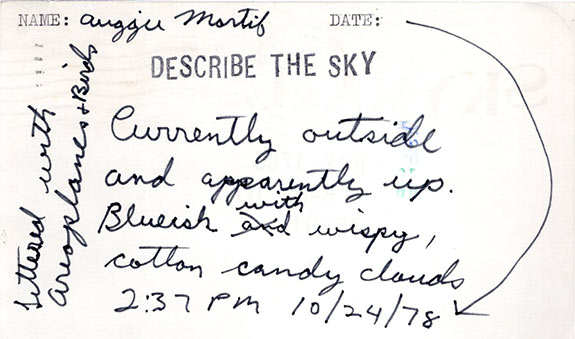 NAME: Auggie Mortif DATE:
DESCRIBE THE SKY
Currently outside
and apparently up.
Blueish with wispy,
cotton candy clouds
2:37 PM 10/24/78
Littered with
Areoplanes + Birds